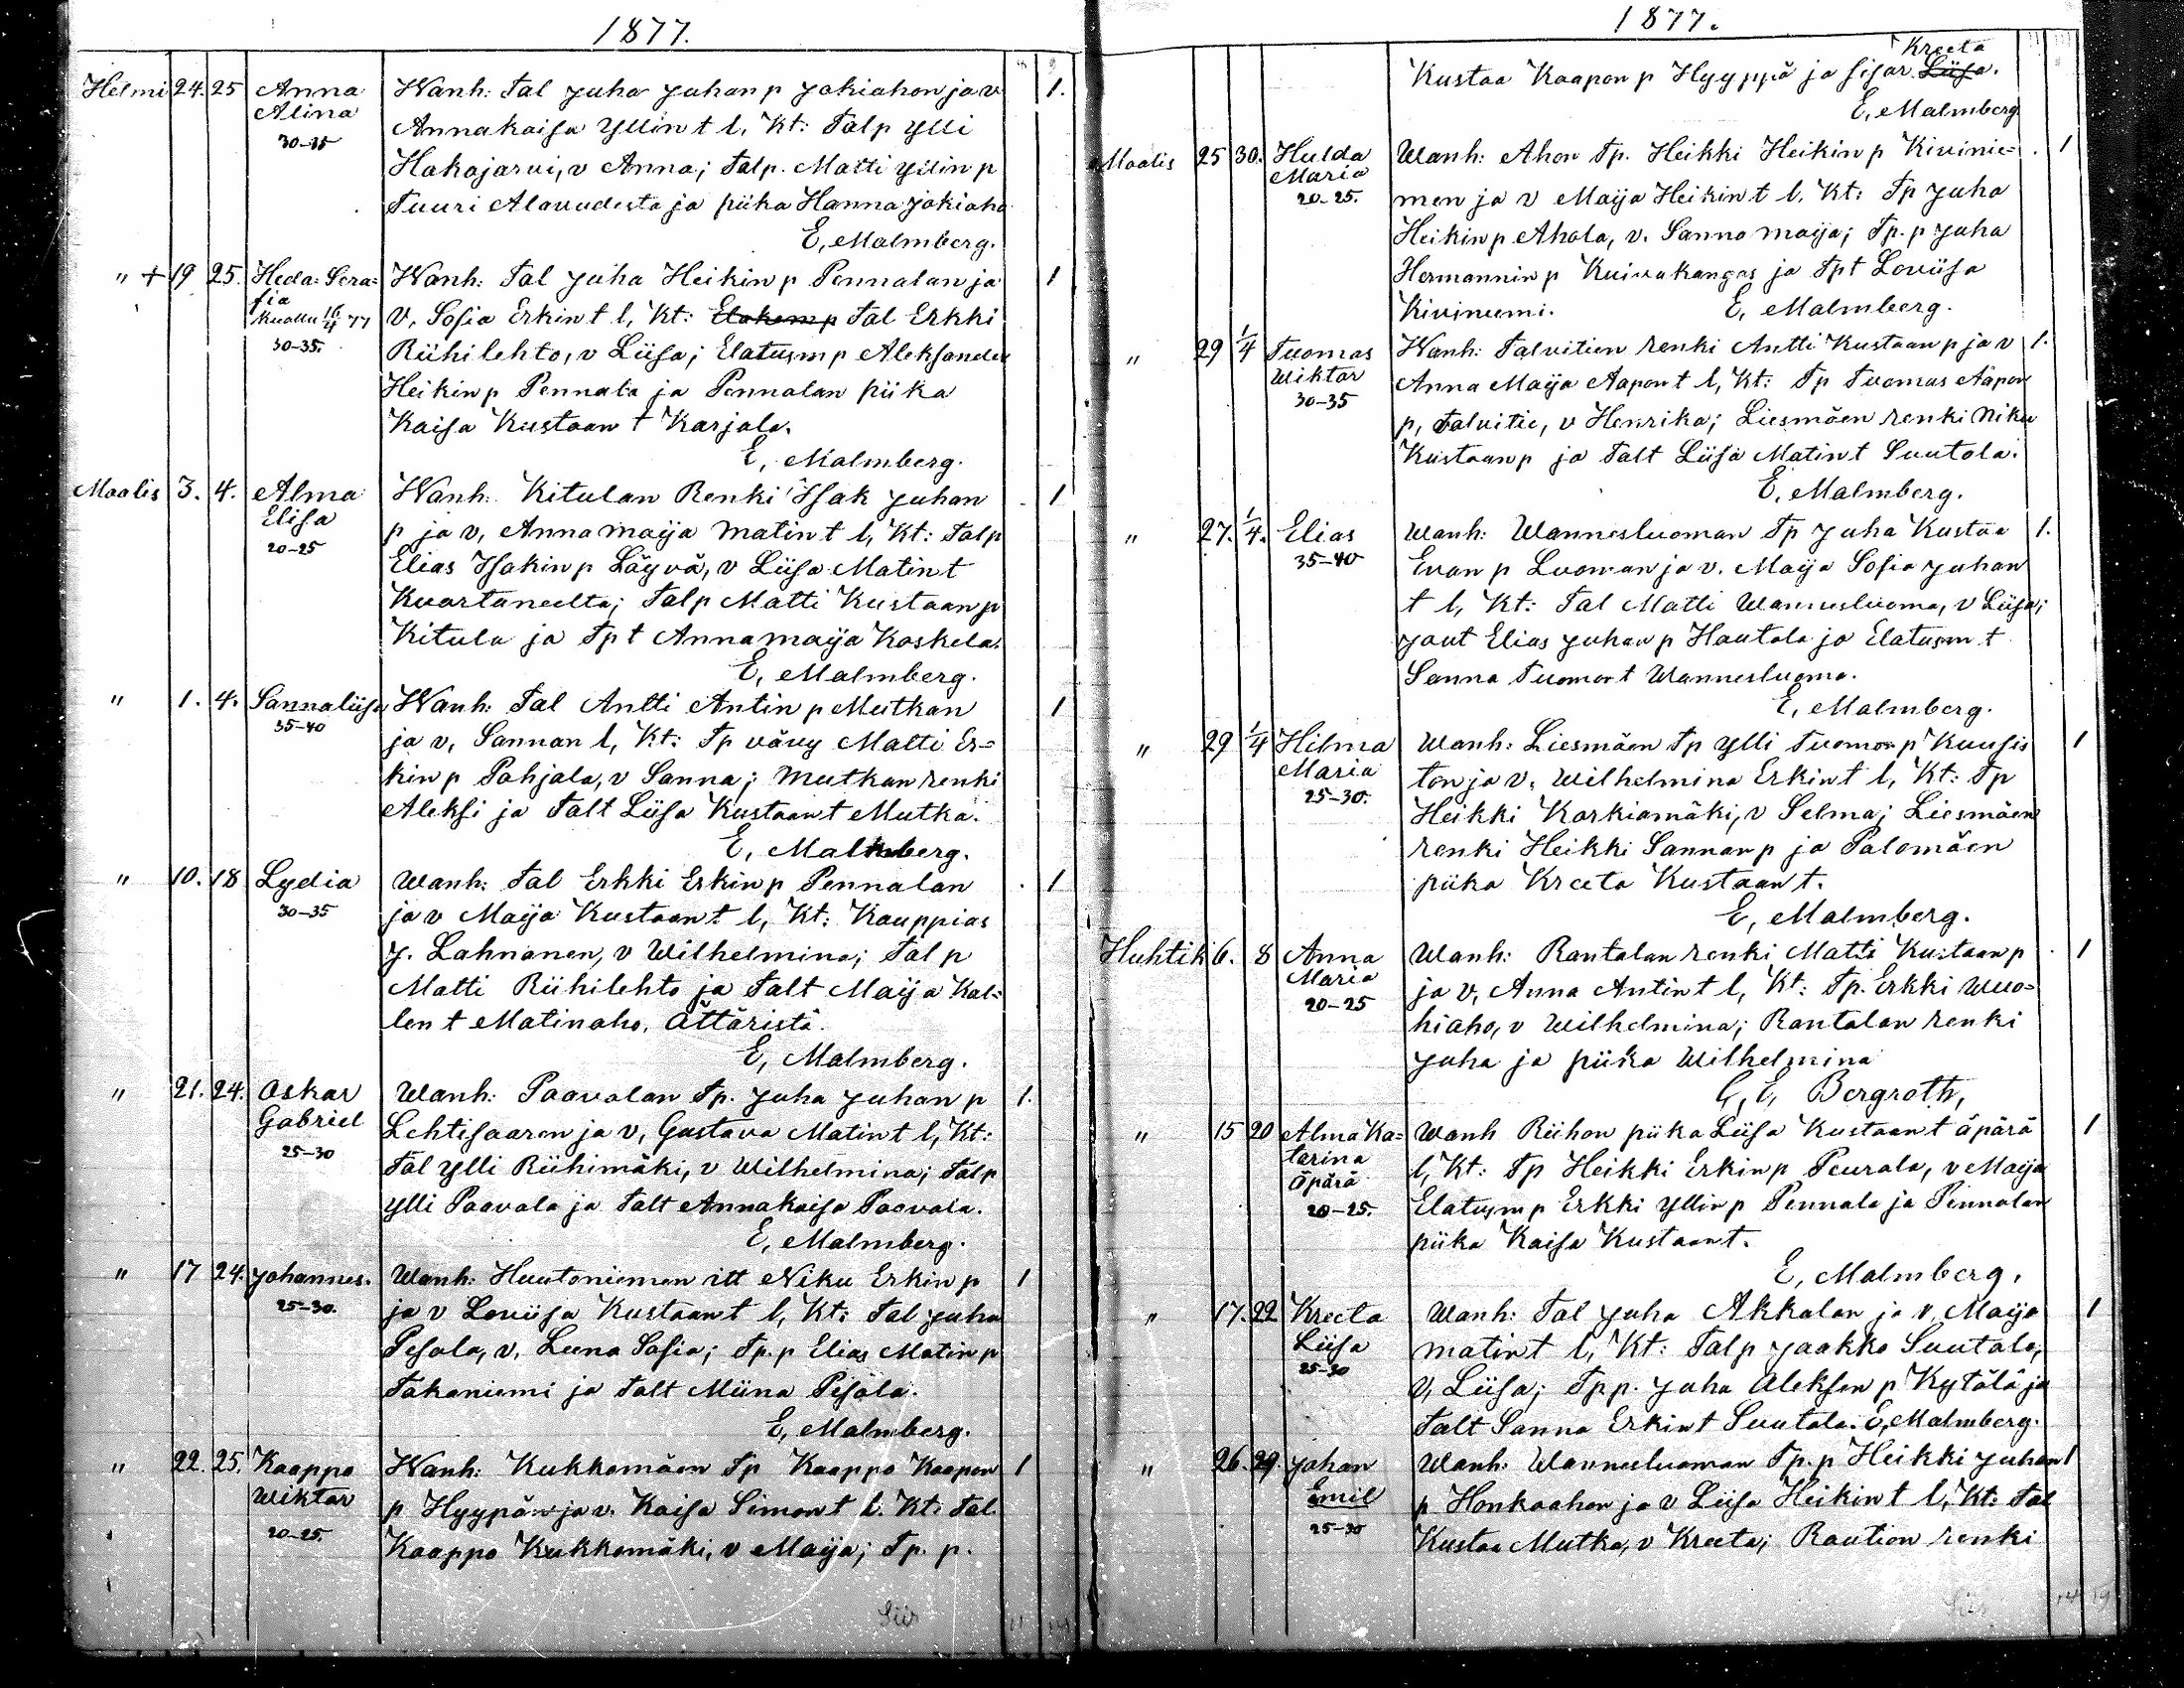 1877.
Helmi 24. 25 Anna Wanh: Tal Juha Juhan p Jokiahon ja v 1.
Alina Annakaisa Yllin t l, Kt: Talp Ylli
30-35 Hakojarvi, v Anna; Talp. Matti Yllin p
Tuuri Alavudesta ja piika Hanna Jokiaho
E, Malmberg.
" + 19 25. Heda Sera= Wanh: Tal Juha Heikin p Pennalan ja 1
fia V, Sofia Erkin t l, Kt: Elakem p Tal Erkki
Kuollu 16/4 77
30-35. Riihilehto, v Liisa; Elatusm p Aleksander
Heikin p Pennala ja Pennalan piika
Kaisa Kustaan t Karjala.
E, Malmberg.
Maalis 3. 4. Alma Wanh: Kitulan Renki Isak Juhan 1
Elisa p ja v, Annamaija Matin t l, Kt: Talp
20-25 Elias Isakin p Läyvä, v Liisa Matin t
Kuortaneelta; Talp Matti Kustaan p
Kitula ja Tp t Annamaija Koskela.
E, Malmberg.
" 1. 4. Sannaliisa Wanh: Tal Antti Antin p Mutkan 1
35-40 ja v, Sannan l, Kt: Tp vävy Matti Er=
kin p Pohjala, v Sanna; Mutkan renki
Aleksi ja Talt Liisa Kustaan t Mutka.
E, Malmberg.
" 10. 18 Lydia Wanh: Tal Erkki Erkin p Pennalan 1
30-35 ja v Maija Kustaan t l, Kt: Kauppias
J. Lahnanen, v Wilhelmina; Tal p
Matti Riihilehto ja Talt Maija Kal=
len t Matinaho, Ättäristä.
E, Malmberg.
" 21. 24. Oskar Wanh: Paavolan Tp. Juha Juhan p 1.
Gabriel Lehtisaaren ja v, Gustava Matin t l, Kt:
25-30 Tal Ylli Riihimäki, v Wilhelmina; Talp
Ylli Paavola ja Talt Annakaisa Paavola.
E, Malmberg.
" 17 24. Johannes. Wanh: Huutoniemen itt Niku Erkin p 1
25-30. ja v Loviisa Kustaan t l, Kt: Tal Juha
Pesola, v, Leena Sofia; Tp. p Elias Matin p
Takaniemi ja Talt Miina Pesola.
E, Malmberg.
" 22. 25. Kaappo Wanh: Kukkomäen Tp Kaappo Kaapon 1
Wiktor p Hyypän ja v. Kaisa Simon t l. Kt: Tal.
20-25. Kaappo Kukkomäki, v Maija; Tp. p.
Siir
1877.
Kreeta
Kustaa Kaapon p Hyyppä ja sisar Liisa.
E, Malmberg
Maalis 25 30. Hulda Wanh: Ahon Tp. Heikki Heikin p Kivinie= 1
Maria men ja v Maija Heikin t l. Kt: Tp Juha
20-25. Heikin p Ahola, v. Sanna Maija; Tp. p Juha
Hermannin p Kuivakangas ja Tpt Loviisa
Kiviniemi. E, Malmberg.
" 29 1/4 Tuomas Wanh: Talvitien renki Antti Kustaan p ja v 1.
Wiktor Anna Maija Aapon t l, Kt: Tp Tuomas Aapon
30-35 p, Talvitie, v Henrika; Liesmäen renki Niku
Kustaan p ja Talt Liisa Matin t Suutala.
E, Malmberg.
" 27. 1/4. Elias Wanh: Wannesluoman Tp Juha Kustaa 1.
35-40 Evan p Luoman ja v. Maija Sofia Juhan
t l, Kt: Tal Matti Wannesluoma, v Liisa;
Jout Elias Juhan p Hautala ja Elatusm t
Sanna Tuomon t Wannesluoma.
E, Malmberg.
" 29 1/4 Hilma Wanh: Liesmäen Tp Ylli Tuomon p Kuusis 1
Maria ton ja v, Wilhelmina Erkin t l, Kt: Tp
25-30. Heikki Karkiamäki, v Selma; Liesmäen
renki Heikki Sannan p ja Palomäen
piika Kreeta Kustaan t.
E, Malmberg.
Huhtik 6. 8 Anna Wanh: Rantalan renki Matti Kustaan p 1
Maria ja v, Anna Antin t l, Kt: Tp. Erkki Wuo=
20-25 hiaho, v Wilhelmina; Rantalan renki
Juha ja piika Wilhelmina
G, E, Bergroth,
" 15 20 Alma Ka= Wanh Riihon piika Liisa Kustaan t äpärä 1
tarina l, Kt: Tp Heikki Erkin p Peurala, v Maija
Äpärä Elatusm p Erkki Yllin p Pennala ja Pennalan
20-25. piika Kaisa Kustaan t.
E, Malmberg,
" 17. 22 Kreeta Wanh: Tal Juha Akkalan ja v, Maija 1
Liisa Matin t l, Kt: Talp Jaakko Suutala,
25-30 v, Liisa; Tpp. Juha Aleksen p Kytölä ja
Talt Sanna Erkin t Suutala. E, Malmberg.
" 26. 29. Johan Wanh: Wannesluoman Tp. p Heikki Juhan 1
Emil p Honkaahon ja v Liisa Heikin t l, Kt: Tal
25-30 Kustaa Mutka, v Kreeta; Raution renki
Siir 14 19